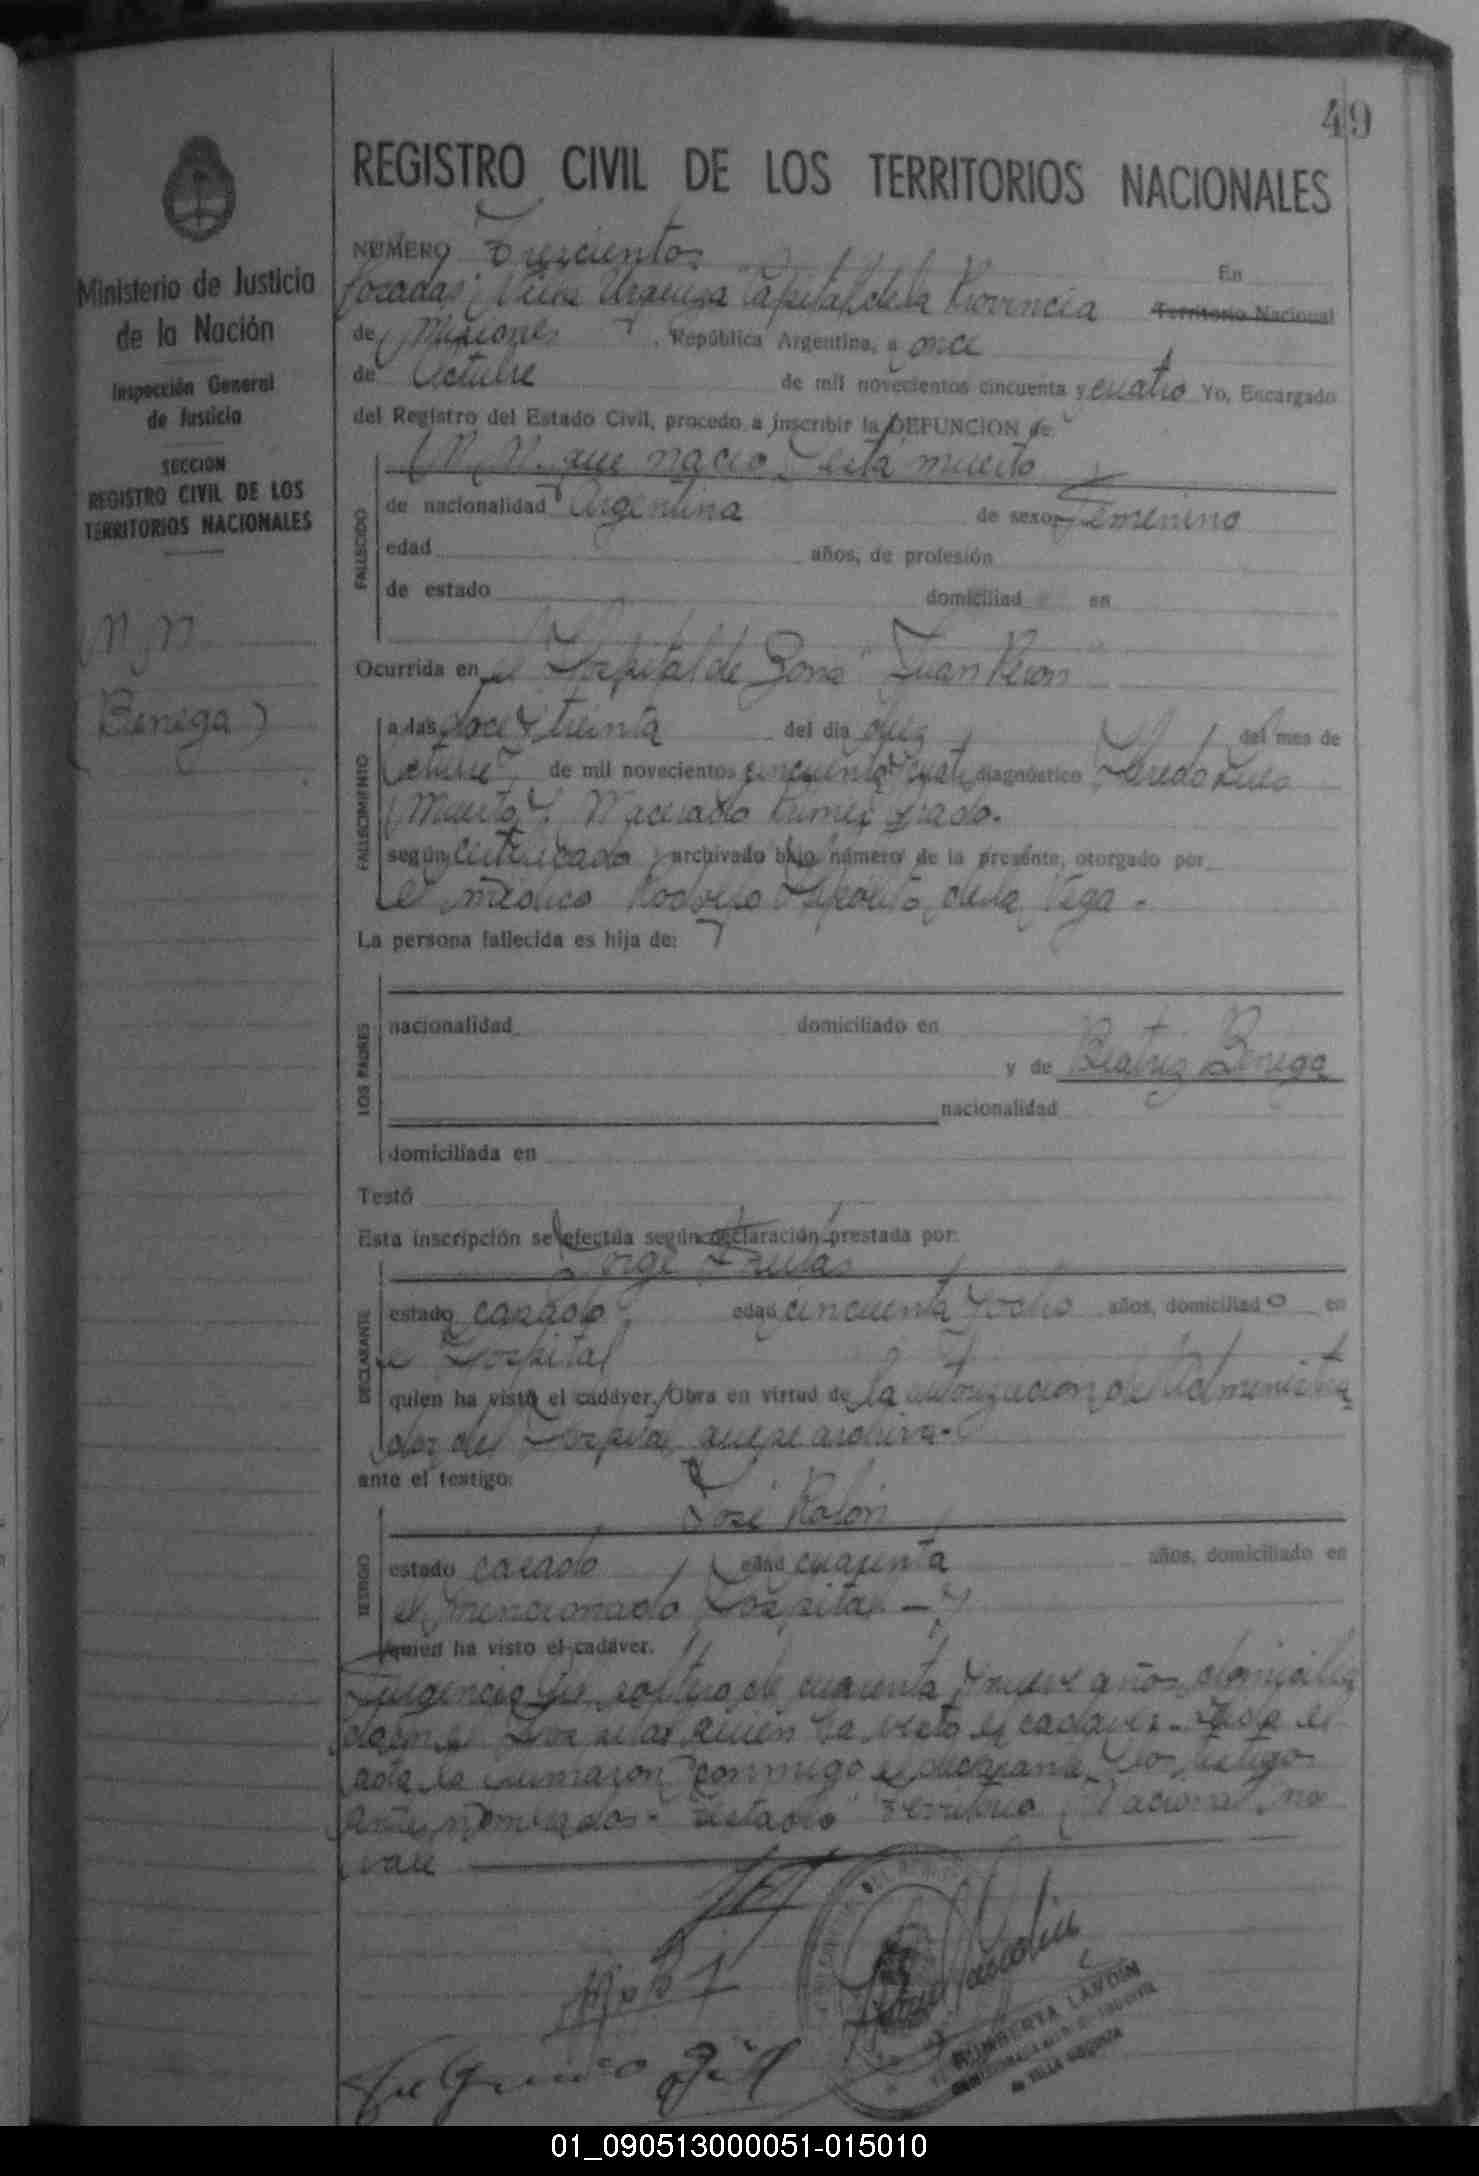 49
REGISTRO CIVIL DE LOS TERRITORIOS NACIONALES
Ministerio de Justicia
de la Nación
Inspección General
de Justicia
SECCION
REGISTRO CIVIL DE LOS
TERRITORIOS NACIONALES
N. N.
(Benega)
NUMERO Trescientos En
Posadas, Villa Urquiza Capital de la Provincia Territorio Nacional
de Misiones, República Argentina, a once
de Octubre de mil novecientos cincuenta y cuatro Yo, Encargado
del Registro del Estado Civil, procedo a inscribir la DEFUNCION de
N. N. que nacio esta muerto
FALLECIDO
de nacionalidad Argentina de sexo Femenino
edad años, de profesión
de estado domiciliad en
Ocurrida en el Hospital de Zona "Juan Peron"
FALLECIMIENTO
a las doce y treinta del día diez del mes de
Octubre de mil novecientos cincuenta y cuatro diagnóstico Feto
Muerto y Macerado Primer grado.
según certificado archivado bajo número de la presente, otorgado por
el médico Rodolfo de la Vega.
La persona fallecida es hija de:
LOS PADRES
nacionalidad domiciliado en
y de Beatriz Benega
nacionalidad
domiciliada en
Testó
Esta inscripción se efectúa según declaración prestada por:
Jorge Freitas
DECLARANTE
estado casado edad cincuenta y ocho años, domiciliado en
el Hospital
quien ha visto el cadáver. Obra en virtud de la autorización del Administra
dor del Hospital que se archiva.
ante el testigo:
José Rolón
TESTIGO
estado casado edad cuarenta años, domiciliado en
el mencionado Hospital - y
quien ha visto el cadáver.
Fulgencio Gil, soltero de cuarenta y nueve años domicilia
do en el Hospital quien ha visto el cadaver. Leida el
acta la firmaron conmigo el declarante y los testigos
antes nombrados. Testado "Territorio Nacional" no
vale
Fulgencio Gil
LANDIN
de VILLA URQUIZA
01_090513000051-015010